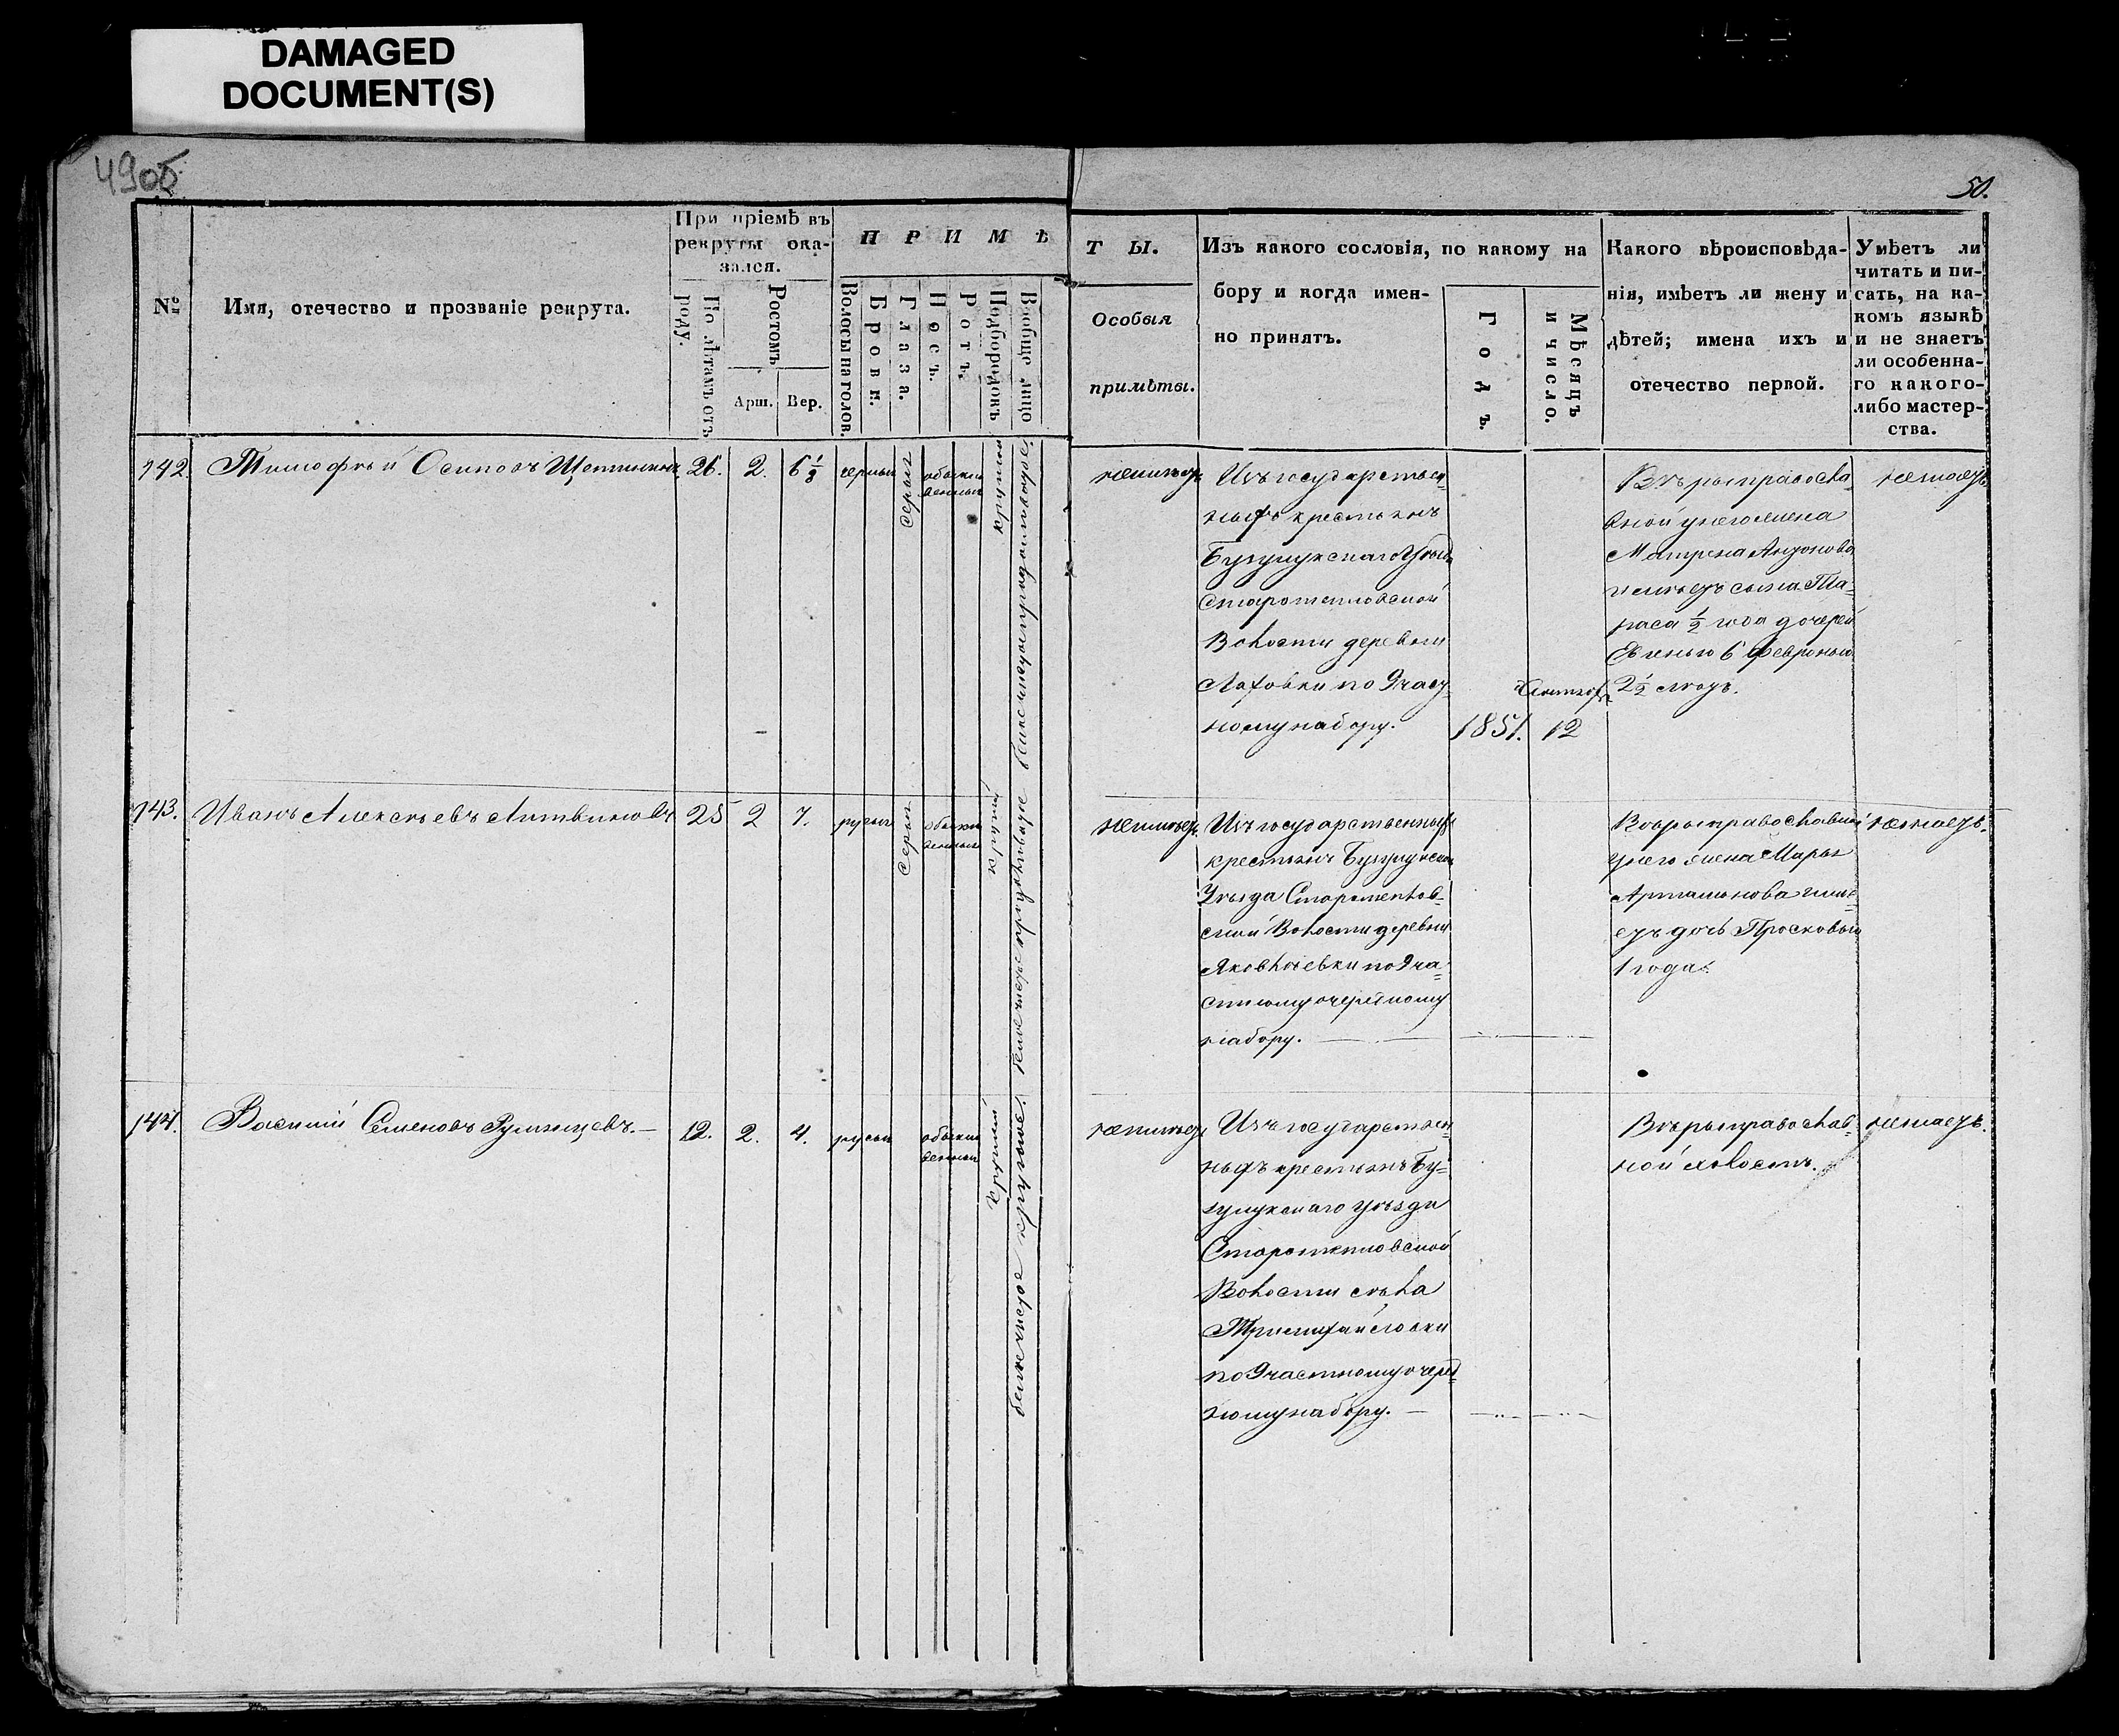 DAMAGED
DOCUMENT(S)
49об
50.
№
Имя, отечество и прозваніе рекрута.
При пріемѣ въ
рекруты ока-
зался.
По лѣтамъ отъ
роду.
Ростомъ
Арш.
Вер.
ПРИМѢ
Волосы на голов.
Брови.
Глаза.
Носъ.
Ротъ.
Подбородокъ
Вообще лицо
ТЫ.
Особыя
примѣты.
Изъ какого сословія, по какому на
бору и когда имен-
но принятъ.
Годъ.
Мѣсяцъ
и число.
Какого вѣроисповѣда-
нія, имѣетъ ли жену и
дѣтей; имена ихъ и
отечество первой.
Умѣетъ ли
читать и пи-
сать, на ка-
комъ языкѣ
и не знаетъ
ли особенна-
го какого-
либо мастер-
ства.
142. Тимофѣй Осиповъ 26. 2. 6 1/8
серыя
обыкно
венныя
круглый
неимѣетъ
Изъ государствен
ныхъ крестьянъ
Бузулукскаго Уѣзда
Старотепловской
Волости деревни
по 9 час
ному набору.
1851. 12
Вѣры правосла
вной у него жена
Матрена
имѣетъ сына Та-
раса 1/2 года дочерей
6 Февронью
2 1/2 лѣтъ.
незнаетъ
143. Иванъ Алексѣевъ Литвиновъ 25 2 7. русыя
серыя
обыкно
венныя
круглый
неимѣетъ
Изъ государственныхъ
крестьянъ Бузулукска
Уѣзда Старотеплов-
ской Волости деревни
Яковлевки по 9 ча-
стному очередному
набору.
Вѣры православной
у него жена Марья
Артамонова имѣ-
етъ дочь Просковью
1 года.
незнаетъ.
144. Василій Семеновъ Румянцевъ. 12. 2. 4. русыя
обыкно
венныя
круглый
неимѣетъ
Изъ государствен
ныхъ крестьянъ Бу-
зулукскаго уѣзда
Старотепловской
Волости села
по 9 частному очеред
ному набору.
Вѣры православ-
ной холостъ.
незнаетъ.